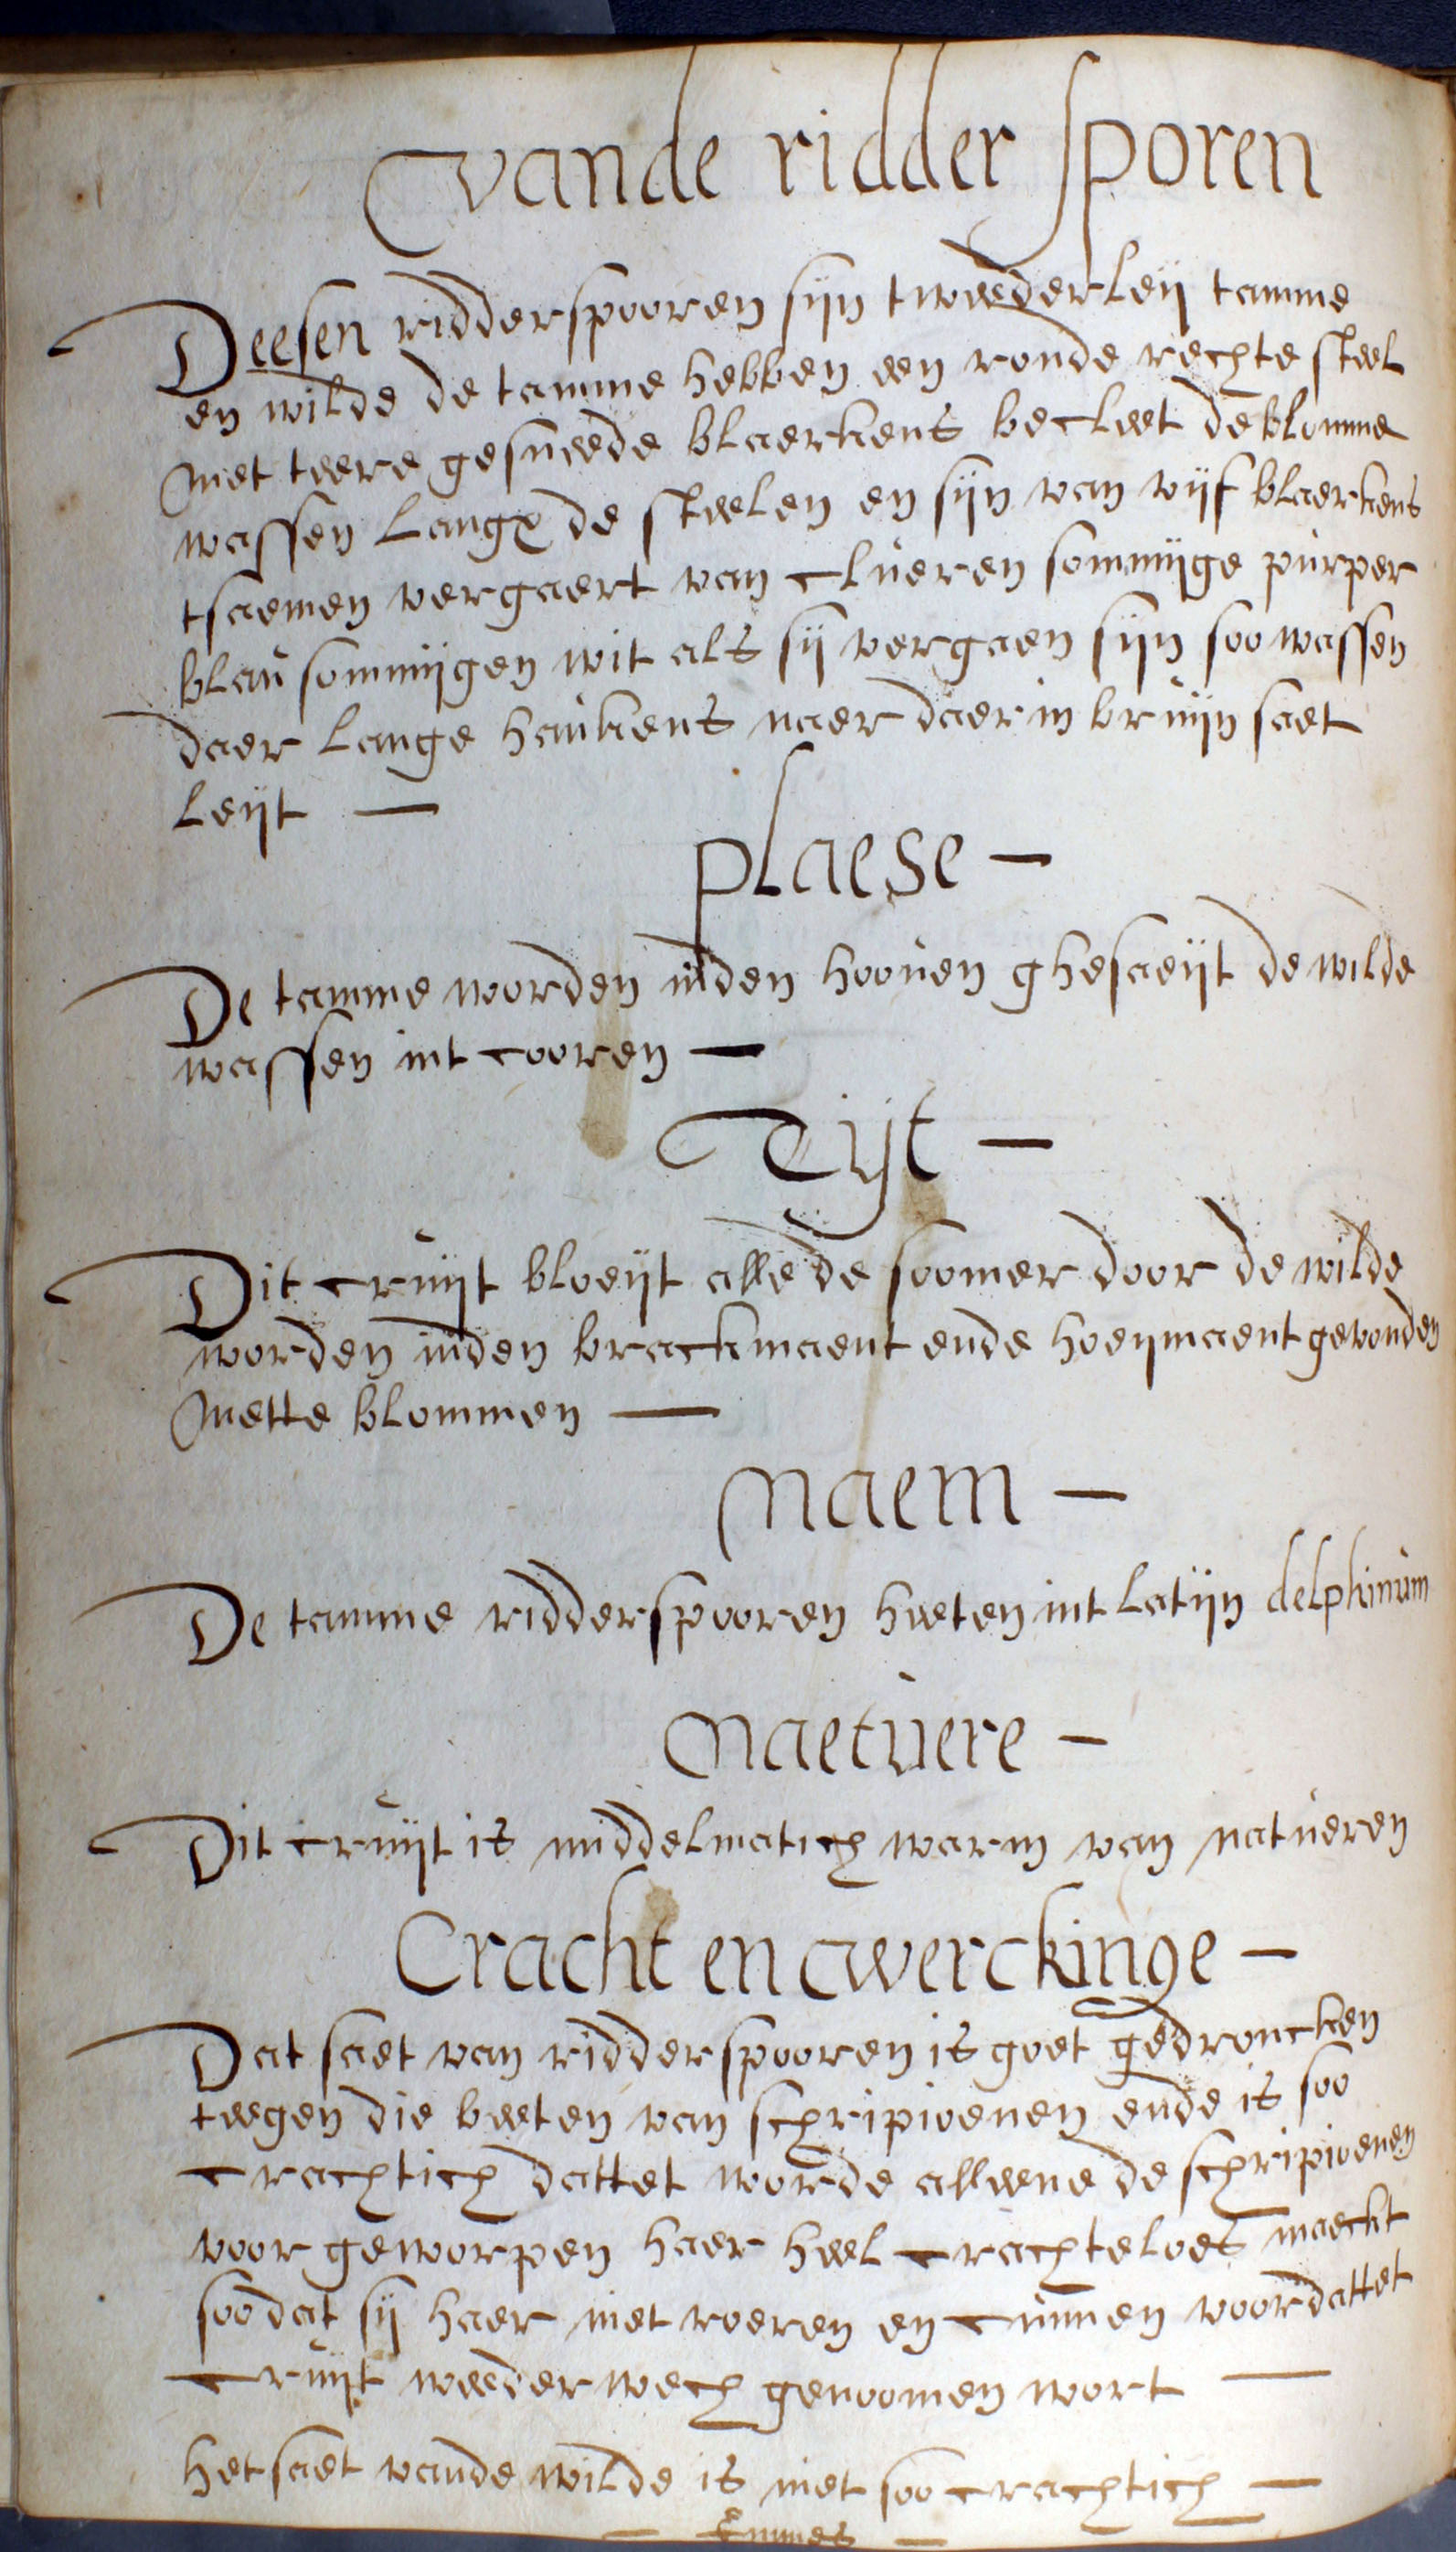 vande ridder sporen
Deesen ridderspooren sijn tweederleij tamme
en wilde de tamme hebben een ronde rechte steel
met teere gesneede blaerkens becleet de blomme
wassen langx de steelen en sijn van vijf blaerkens
tsaemen vergaert van clueren sommijge purper
blau sommijgen wit als sij vergaen sijn soo wassen
daer lange haukens naer daer in bruijn saet
leijt —
plaese —
De tamme worden inden hooven ghesaeijt de wilde
wassen int cooren —
Tijt —
Dit cruijt bloeijt alle de soomer door de wilde
worden inden brackmaent ende hoeijmaent gevonden
mette blommen —
naem —
De tamme ridderspooren heeten int latijn delphinum
naetuere —
Dit cruijt is middelmatich warm van natueren
Cracht en werckinge —
Dat saet van ridderspooren is goet gedroncken
teegen die beeten van schripioenen ende is soo
crachtich dattet worde alleene de schripioenen
voor geworpen haer heel crachteloes maeckt
soo dat sij haer niet roeren en cunnen voordattet
cruijt weeder wech genoomen wort —
het saet vande wilde is niet soo crachtich —